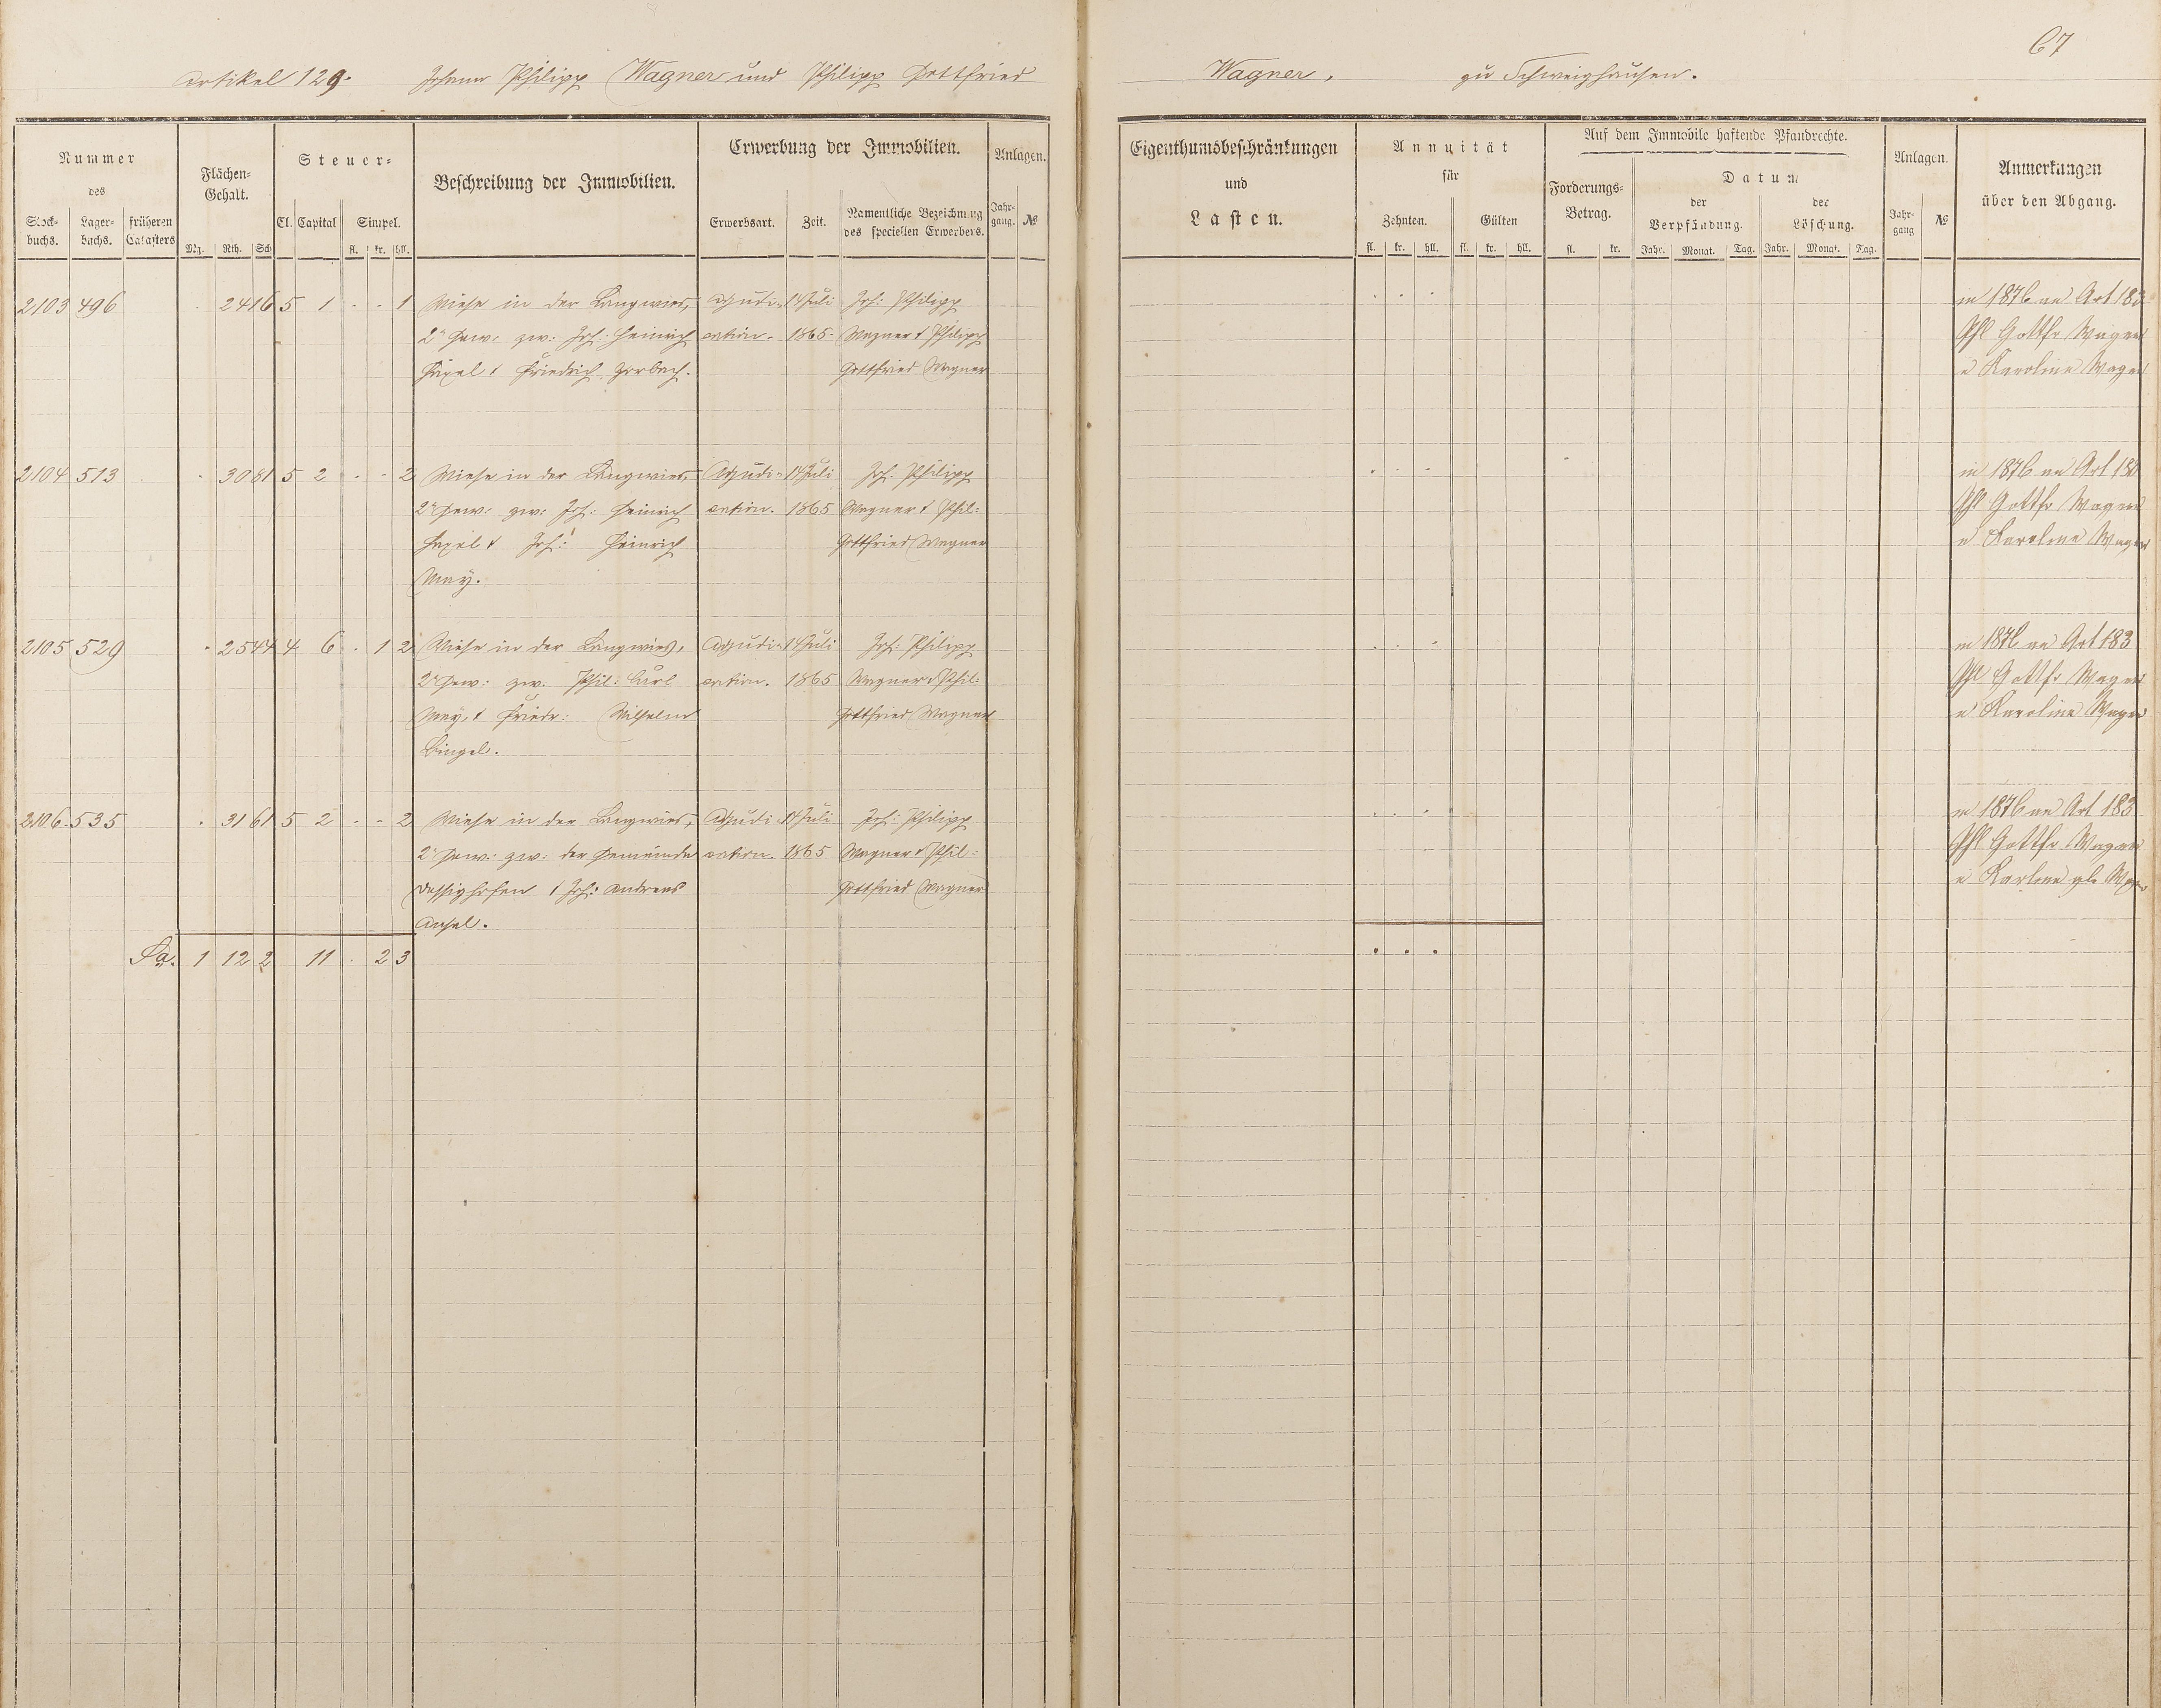 67
Artikel 129. Johann Philipp Wagner und Philipp Gottfried Wagner, zu Schweighausen.
Nummer des
Stock-buchs. Lager-buchs. früheren Catasters
Flächen-Gehalt.
Mg. Rth. Sch
Steuer-
Cl. Capital Simpel.
fl. kr. hll.
Beschreibung der Immobilien.
Erwerbung der Immobilien.
Erwerbsart. Zeit. Namentliche Bezeichnung des speciellen Erwerbers.
Anlagen.
Jahr-gang. №
Eigenthumsbeschränkungen
und
Lasten.
Annuität
für
Zehnten. Gülten
fl. kr. hll. fl. kr. hll.
Auf dem Immobile haftende Pfandrechte.
Forderungs-Betrag.
fl. kr.
Datum
der Verpfändung. der Löschung.
Jahr. Monat. Tag. Jahr. Monat. Tag.
Anlagen.
Jahr-gang №
Anmerkungen
über den Abgang.
2103 496 . 24 16 5 1 . . 1 Wiese in der Langwies, Adjudi- 14 Juli Joh: Philipp in 1876 an Art 183
2r Gew: zw: Joh: Heinrich cation. 1865. Wagner & Philipp Phl Gottfr Wagner
& Friedrich Gottfried Wagner u Karoline Wagner
2104 513 . 30 81 5 2 . . 2 Wiese in der Langwies, Adjudi- 14 Juli Joh: Philipp in 1876 an Art 183
2r Gew: zw: Joh: Heinrich cation. 1865 Wagner & Phil: Phl Gottfr Wagner
& Joh: Heinrich Gottfried Wagner u Karoline Wagner
May.
2105 529 . 25 44 4 6 . 1 2 Wiese in der Langwies, Adjudi- 14 Juli Joh: Philipp in 1876 an Art 183
2r Gew: zw: Phil: Carl cation. 1865 Wagner & Phil: Phl Gottfr Wagner
May, & Friedr: Wilhelm Gottfried Wagner u Karoline Wagner
Bingel.
2106. 535 . 31 61 5 2 . . 2 Wiese in der Langwies, Adjudi- 14 Juli Joh: Philipp in 1876 an Art 183
2r Gew: zw: der Gemeinde cation. 1865 Wagner & Phil: Phl Gottfr Wagner
Dessighofen & Joh: Andreas Gottfried Wagner
Sa. 1 12 2 11 . 2 3